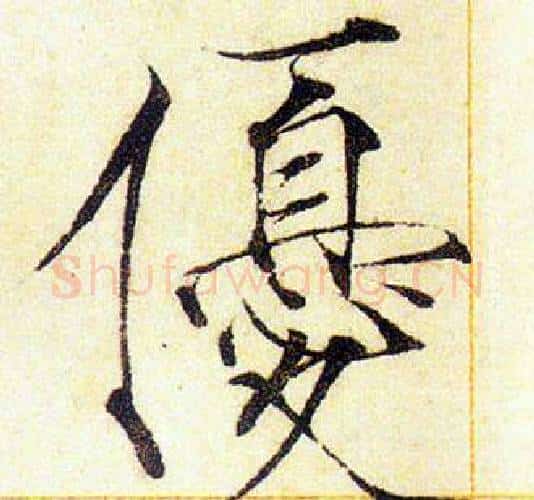 優
Shufawang.CN